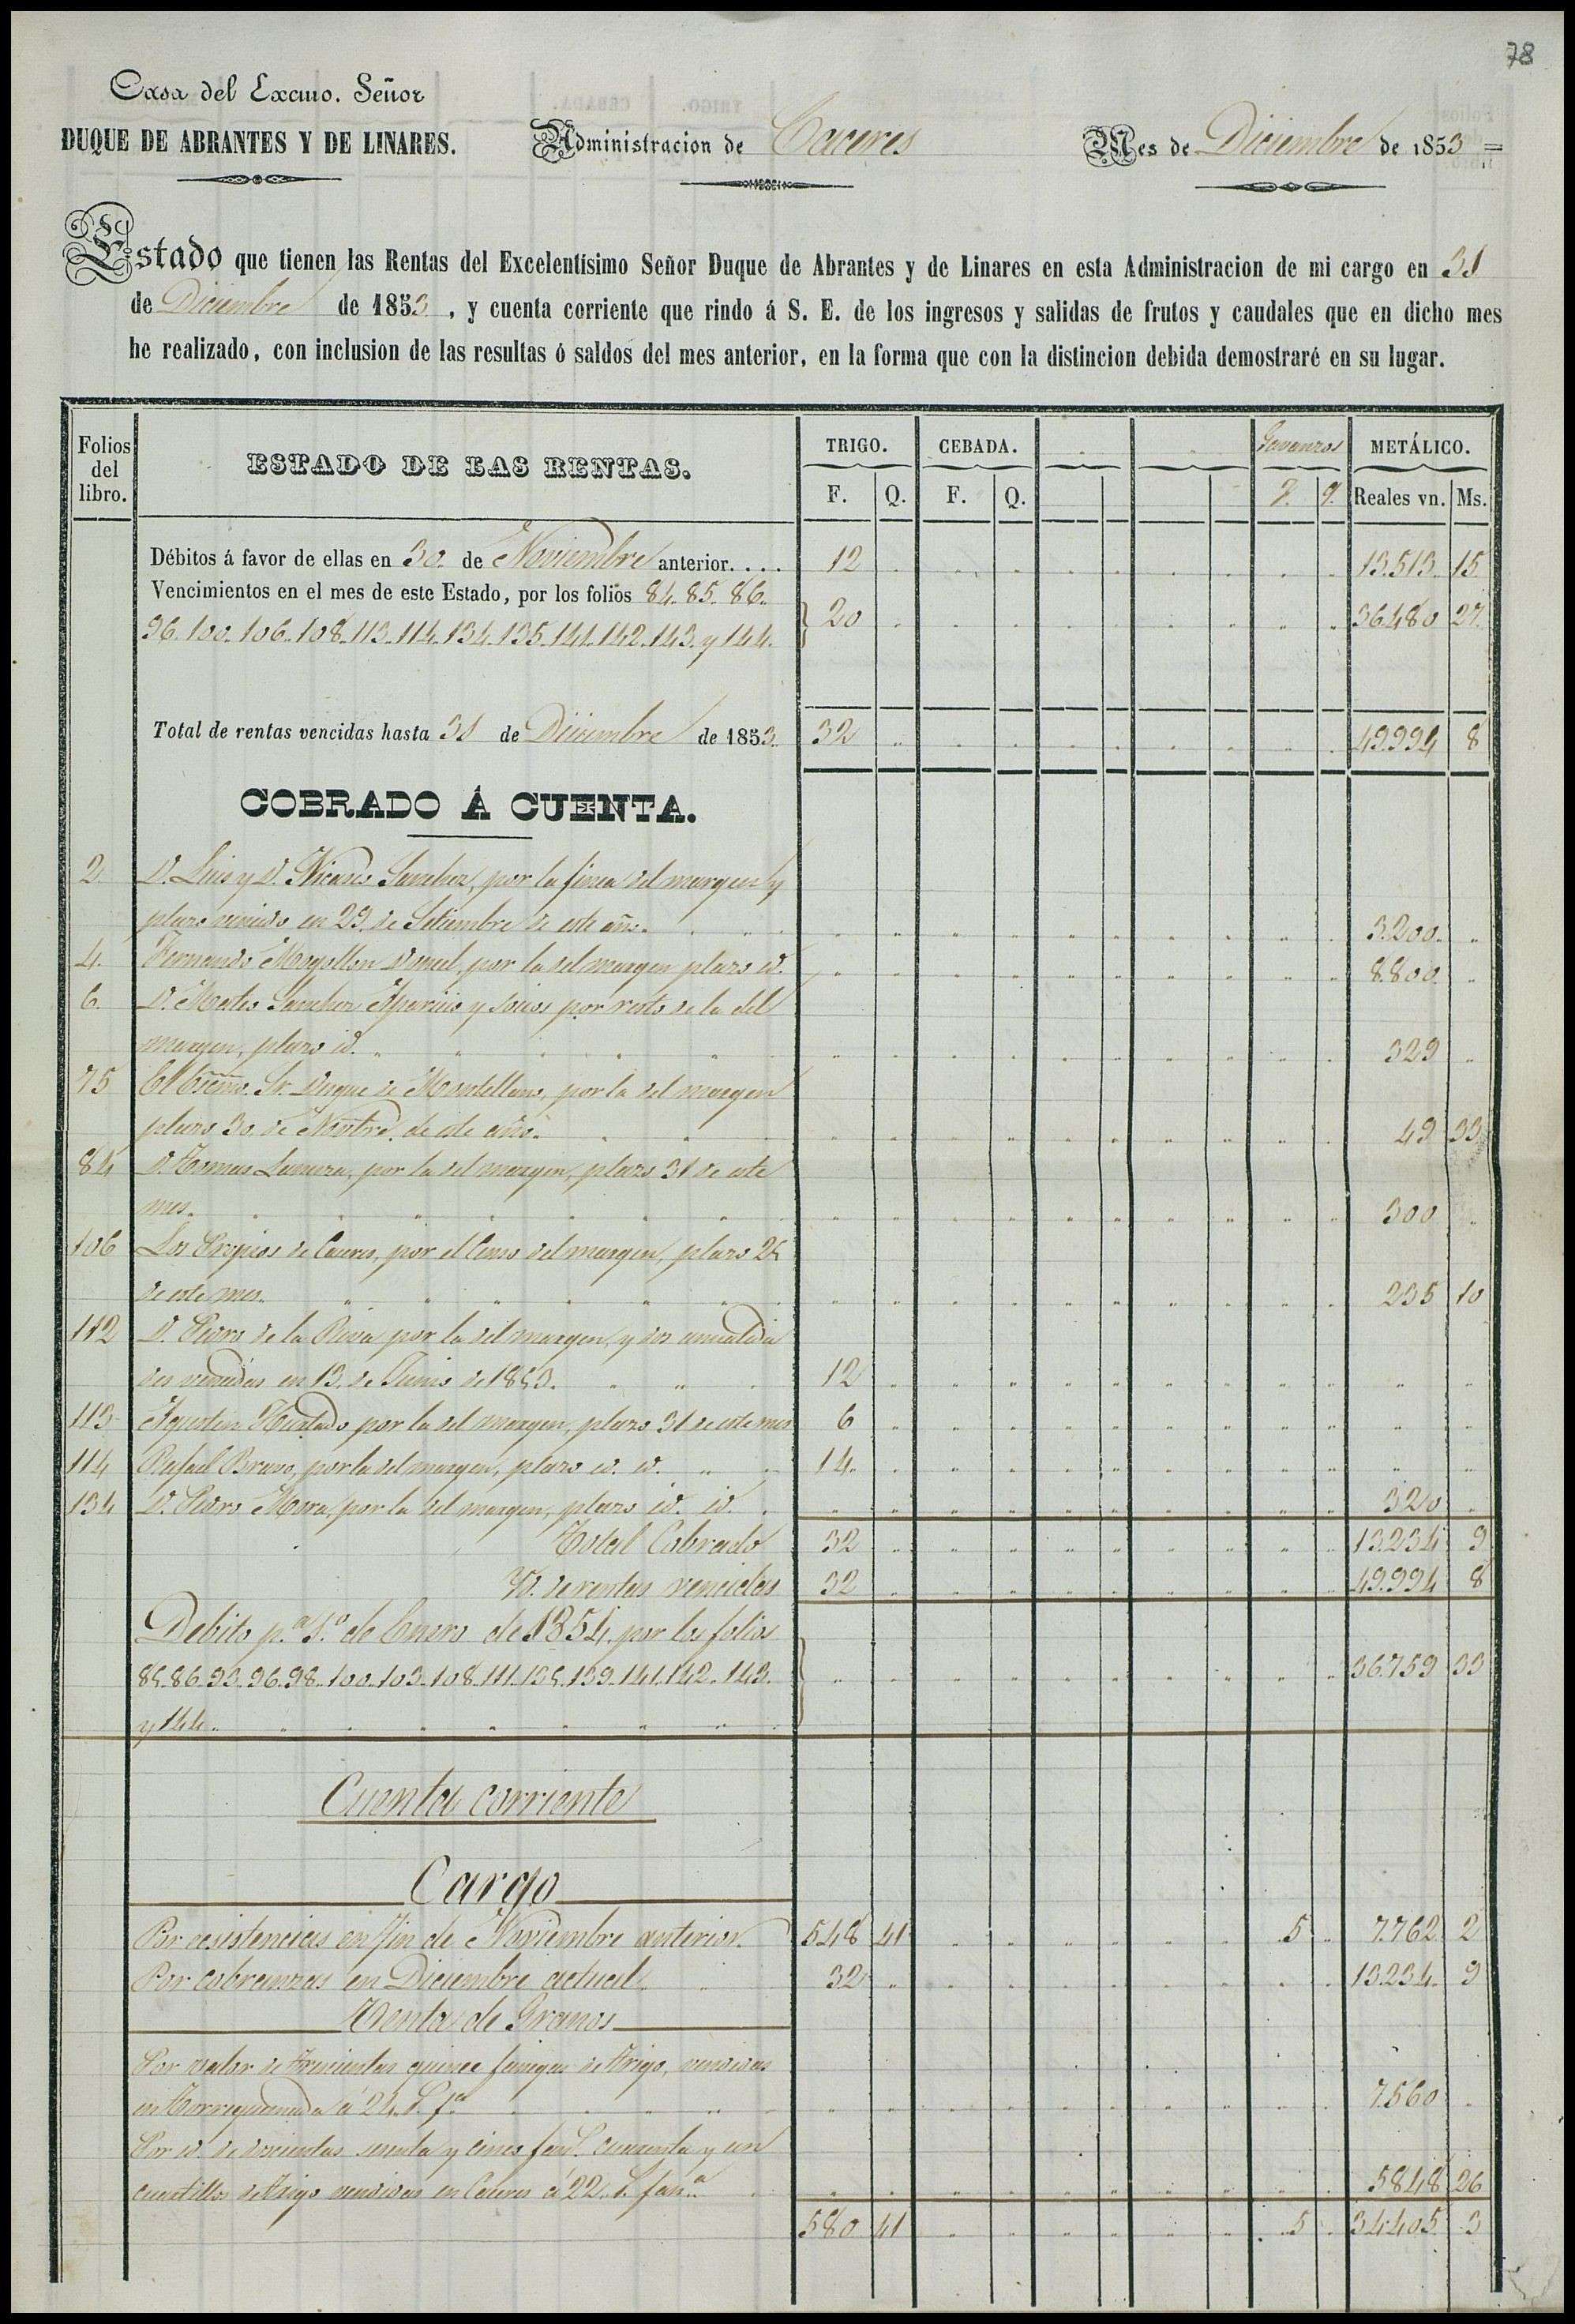 78
Casa del Excmo. Señor
DUQUE DE ABRANTES Y DE LINARES.
Administracion de Caceres
Mes de Diciembre de 1853 =
Estado que tienen las Rentas del Excelentísimo Señor Duque de Abrantes y de Linares en esta Administracion de mi cargo en 31
de Diciembre de 1853, y cuenta corriente que rindo á S. E. de los ingresos y salidas de frutos y caudales que en dicho mes
he realizado, con inclusion de las resultas ó saldos del mes anterior, en la forma que con la distincion debida demostraré en su lugar.
Folios del libro. ESTADO DE LAS RENTAS. TRIGO. CEBADA. Garvanzos METÁLICO.
F. Q. F. Q. F. Q. Reales vn. Ms.
Débitos á favor de ellas en 30 de Noviembre anterior.... 12 13.513 15
Vencimientos en el mes de este Estado, por los folios 84. 85. 86.
96. 100. 106. 108. 113. 114. 134. 135. 141. 142. 143. y 144. 20 36.480 27
Total de rentas vencidas hasta 31 de Diciembre de 1853. 32 49.994 8
COBRADO Á CUENTA.
2. D. Luis y D. Nicasio Sanchez, por la finca del margen y
plazo vencido en 29 de Setiembre de este año. 3.200
4. Fernando Mogollon Doncel, por la del margen plazo id. 8.800
6. D. Mateo Sanchez Aparicio y socios por resto de la del
margen, plazo id. 329
75 El Excmo. Sr. Duque de Montellano, por la del margen
plazo 30 de Novbre. de este año. 49 33
84 D. Tomas Lumera, por la del margen, plazo 31 de este
mes. 300
106 Los Propios de Caceres, por el Censo del margen, plazo 25
de este mes. 235 10
112 D. Pedro de la Riva por la del margen, y dos anualida
des vencidas en 13 de Junio de 1853. 12
113 Agustin Hurtado por la del margen, plazo 31 de este mes 6
114 Rafael Bravo, por la del margen, plazo id. id. 14
134 D. Pedro Mora, por la del margen, plazo id. id. 320
Total Cobrado 32 13.234 9
Id. de rentas vencidas 32 49.994 8
Debito p.ª 1.º de Enero de 1854, por los folios
85. 86. 93. 96. 98. 100. 103. 108. 111. 135. 139. 141. 142. 143. 36.759 33
y 144.
Cuenta corriente
Cargo
Por existencias en fin de Noviembre anterior. 548 41 5 7.762 2
Por cobranzas en Diciembre actual. 32 13.234 9
Venta de Granos
Por valor de trescientas quince fanegas de trigo, vendidas
en Torrequemada á 24 r.s f.ª 7.560
Por id. de doscientas sesenta y cinco fan.s cuarenta y un
cuartillos de trigo vendidas en Caceres á 22 r.s fan.ª 5.848 26
580 41 5 34.405 3